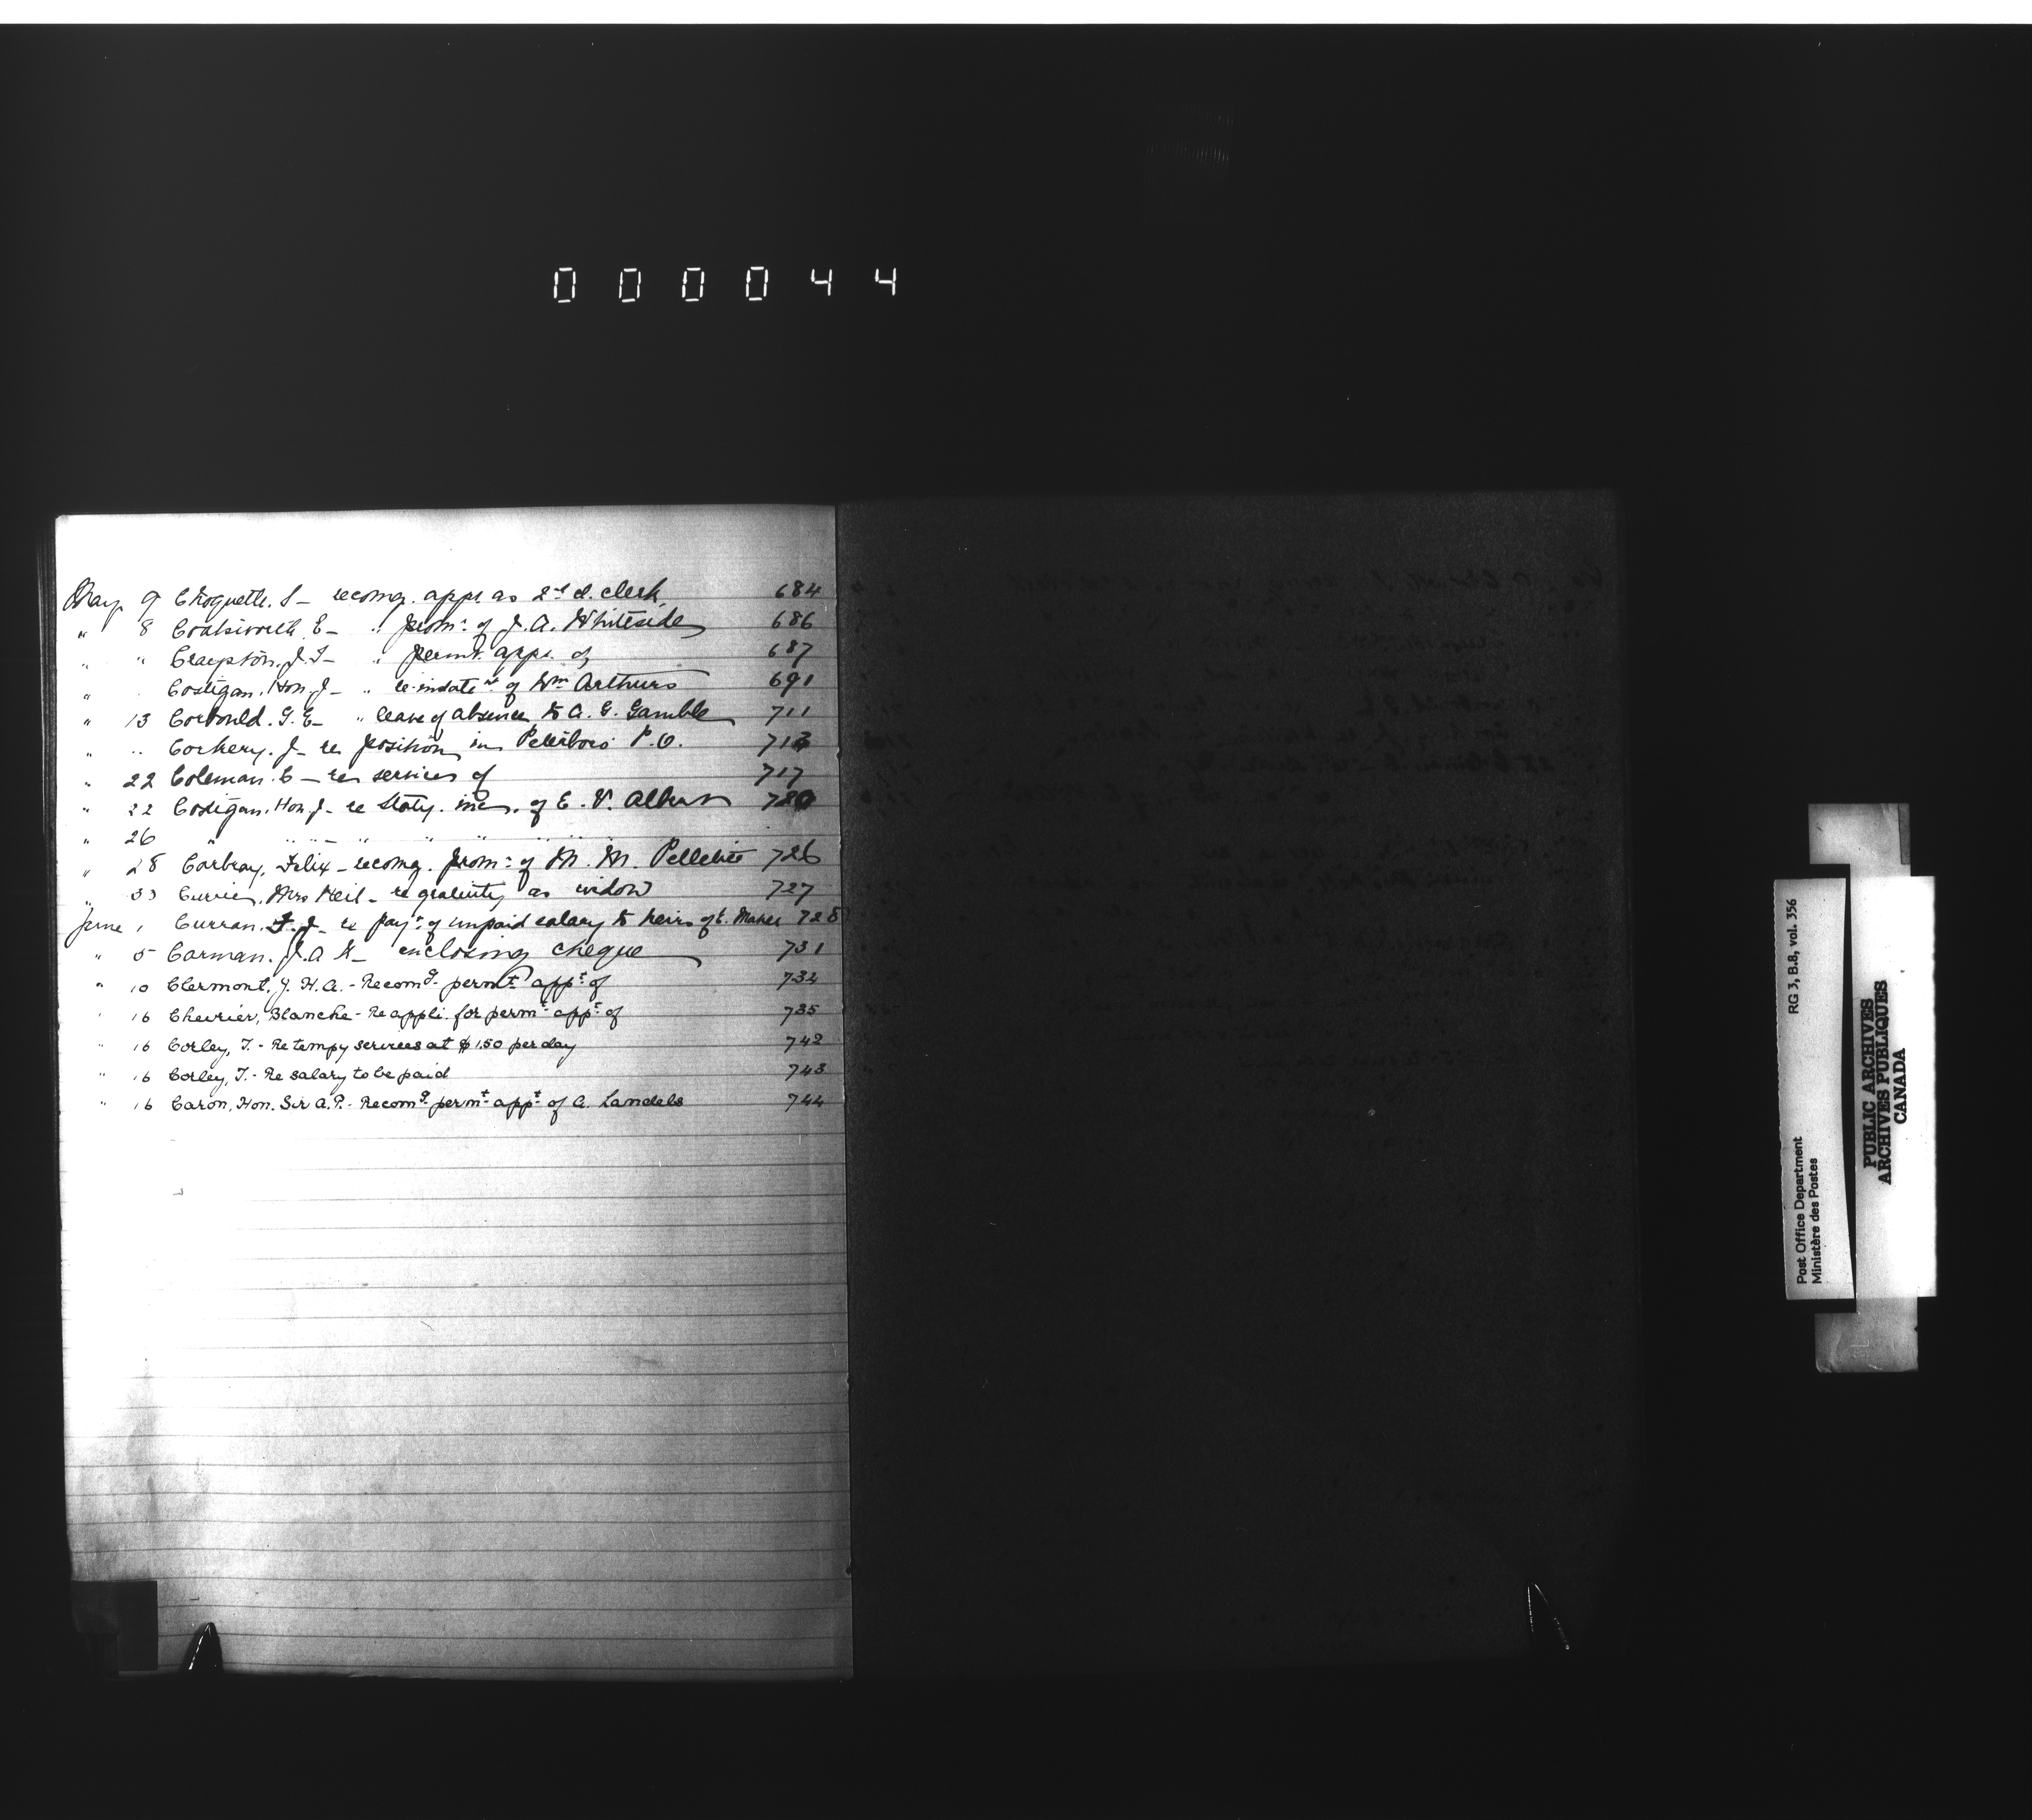 000044
May 9 Choquette. S - recomg. appt. as 2nd cl. clerk 684
" 8 Coatsworth E - " promn. of J. A. Whiteside 686
" " J. T - " permt. appt. of 687
" Costigan. Hon. J - " re-instatemt of Wm Arthurs 691
" 13 Corbould. G. E - " leave of absence to A. E. Gamble 711
" " Corkery. J - re position in Peterboro P.O. 713
" 22 Coleman. C - re services of 717
" 22 Costigan. Hon J - re Staty. inc. of E. V. 720
" 26 " " " - " " " " "
" 28 Corbray, Felix - recomg. promn. of M. M. Pelletier 726
" Currie, Mrs Neil - re gratuity as widow 727
June 1 Curran. J. J - re payt. of unpaid salary to heirs of E. Maher 728
" 5 Carman. J. A K - enclosing cheque 731
" 10 Clermont, J. H. A. - Recomg. permt. appt. of 734
" 16 Chevrier, Blanche - Re appli. for permt. appt. of 735
" 16 Corley, T. - Re tempy services at $1.50 per day 742
" 16 Corley, T. - Re salary to be paid 743
" 16 Caron, Hon. Sir A. P. - Recomg. permt. appt. of A. Landels 744
RG 3, B.8, vol. 356
Post Office Department
Ministère des Postes
PUBLIC ARCHIVES
ARCHIVES PUBLIQUES
CANADA